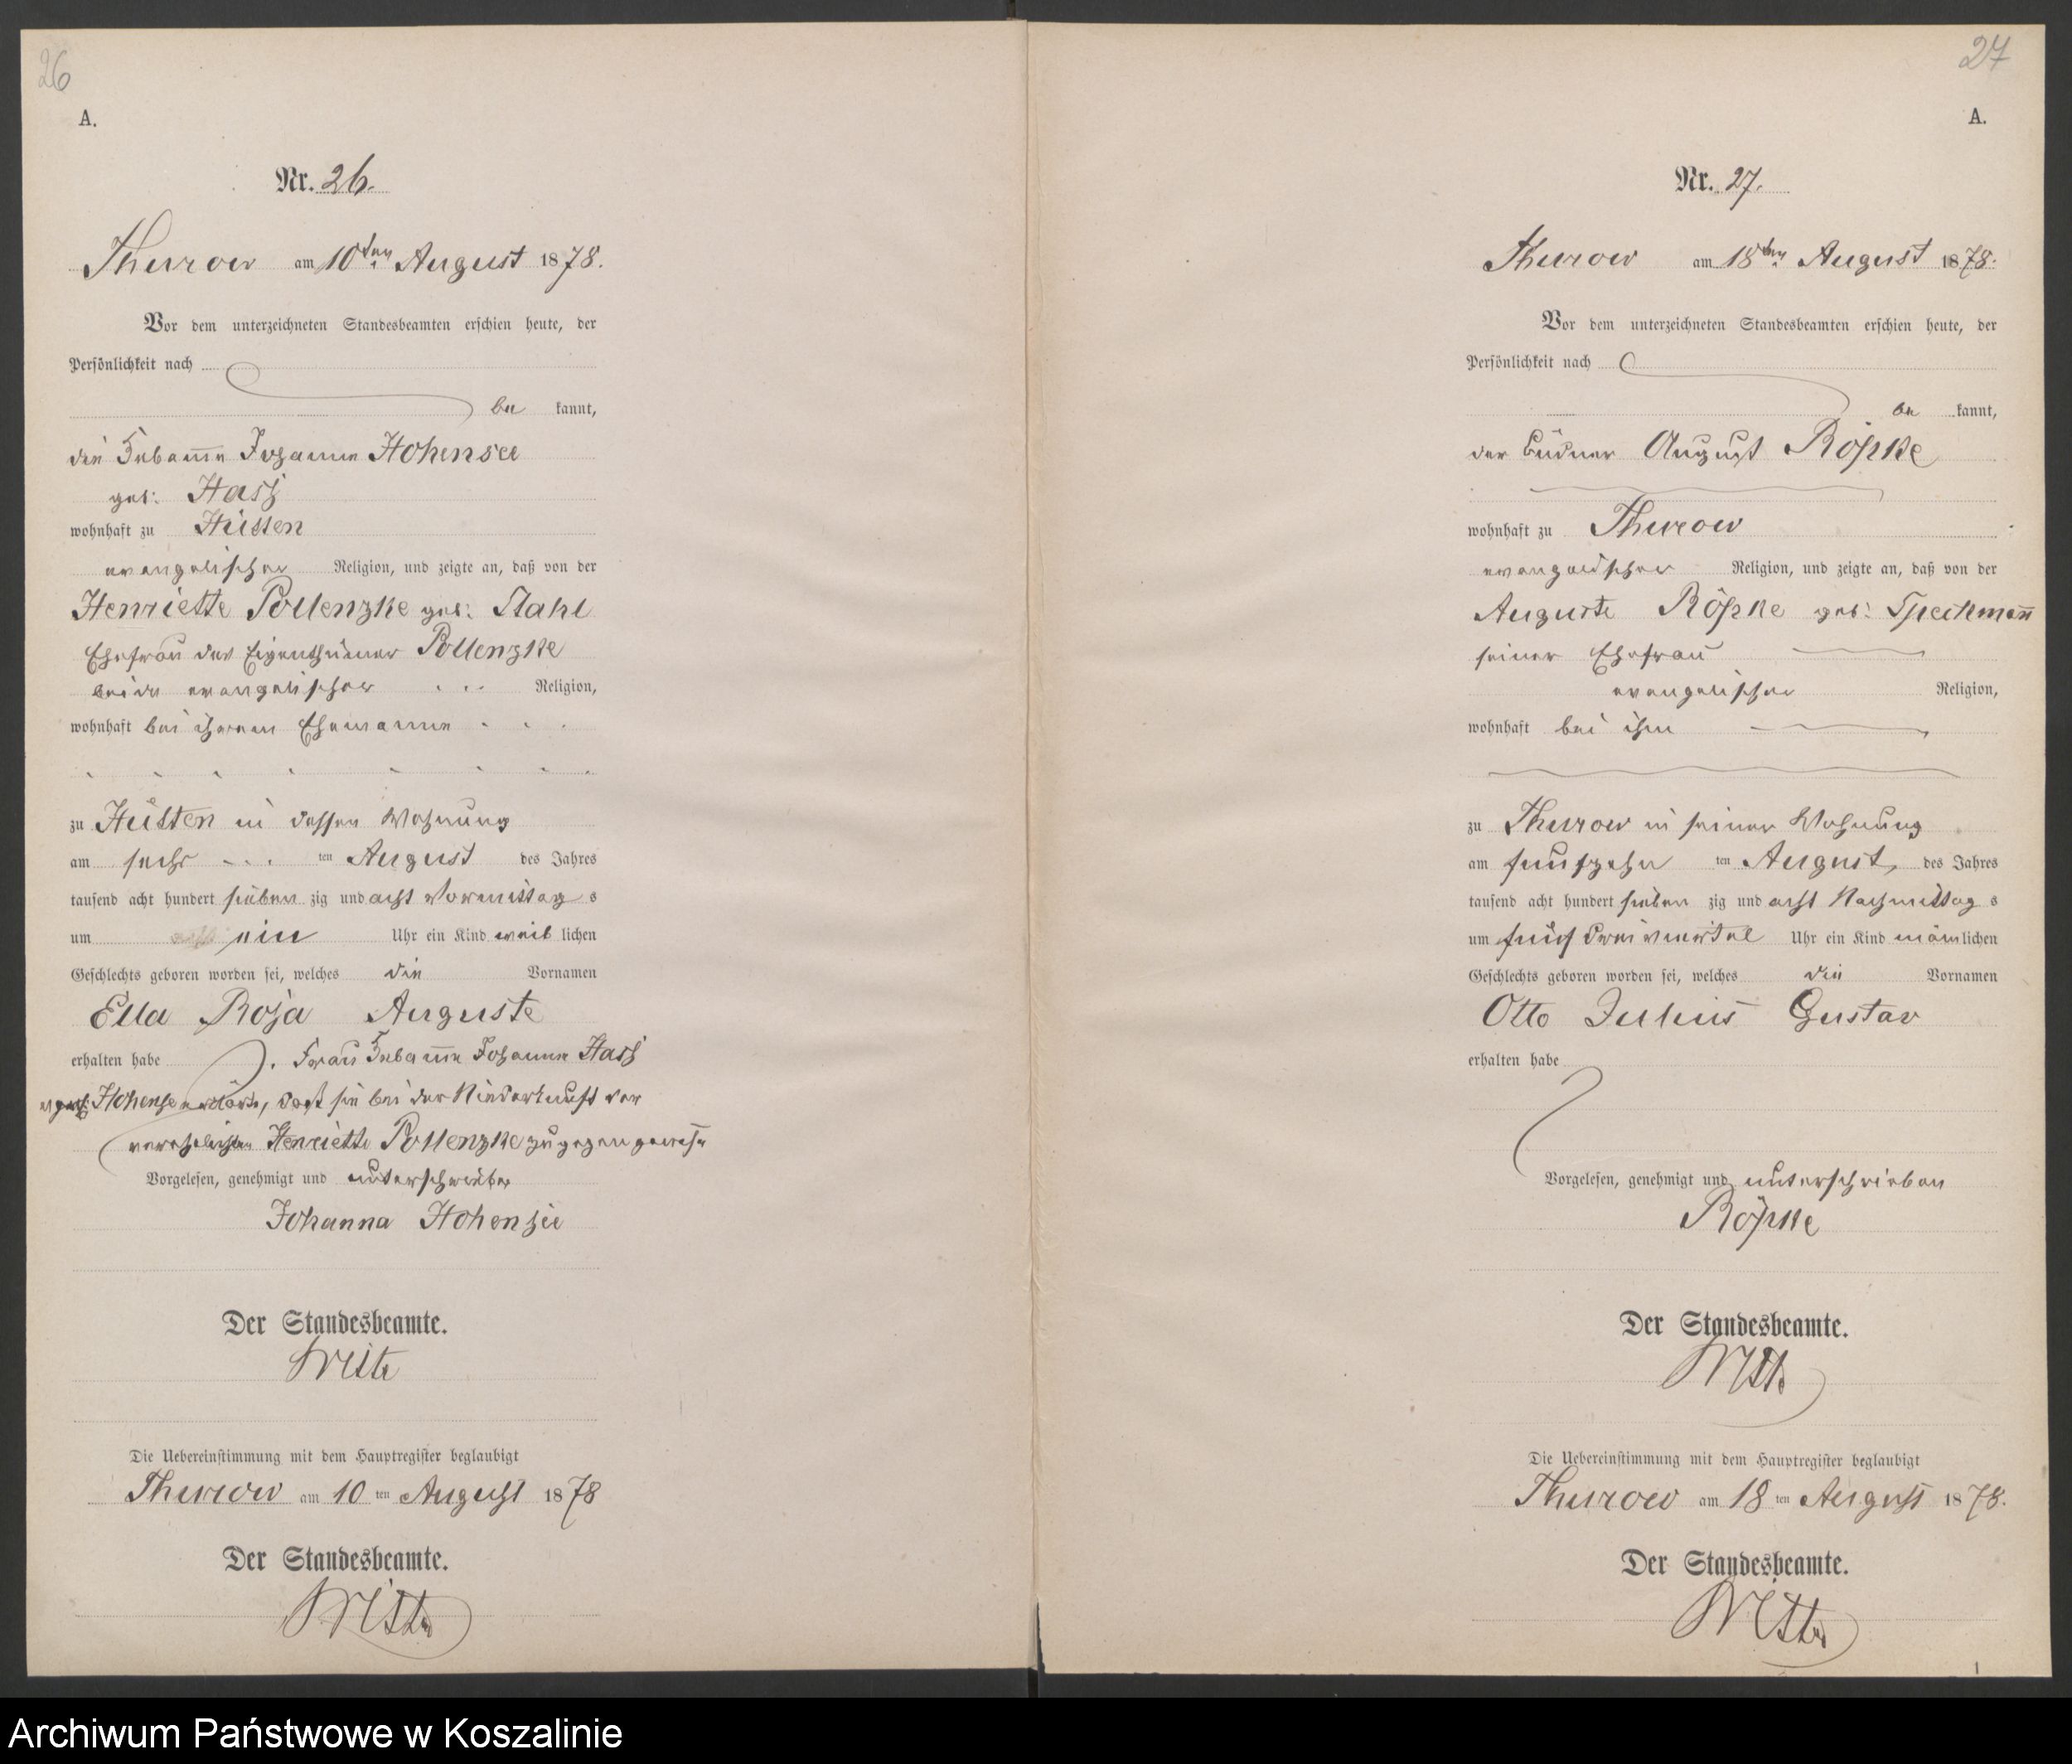 26
A.
Nr. 26.
Thurow am 10ten August 1878.
Vor dem unterzeichneten Standesbeamten erschien heute, der
Persönlichkeit nach
be kannt,
die Hebamme Johanne Hohensee
geb: Hass
wohnhaft zu Hütten
evangelischer Religion, und zeigte an, daß von der
Henriette Pollenzke geb: Stahl
Ehefrau des Eigenthümer Pollenzke
beide evangelischer Religion,
wohnhaft bei ihrem Ehemanne
zu Hütten in dessen Wohnung
am sechs ten August des Jahres
tausend acht hundert sieben zig und acht Vormittag s
um ein Uhr ein Kind weib lichen
Geschlechts geboren worden sei, welches die Vornamen
Ella Rosa Auguste
erhalten habe. Frau Hebamme Johanne Hass
Hohensee erklärte, daß sie bei der Niederkunft der
verehelichten Henriette Pollenzke zugegen gewesen
Vorgelesen, genehmigt und unterschrieben
Johanna Hohensee
Der Standesbeamte.
Witte
Die Uebereinstimmung mit dem Hauptregister beglaubigt
Thurow am 10 ten August 1878
Der Standesbeamte.
Witte
27
A.
Nr. 27.
Thurow am 18ten August 1878.
Vor dem unterzeichneten Standesbeamten erschien heute, der
Persönlichkeit nach
be kannt,
der Büdner August Röpke
wohnhaft zu Thurow
evangelischer Religion, und zeigte an, daß von der
Auguste Röpke geb: Speckmann
seiner Ehefrau
evangelischer Religion,
wohnhaft bei ihm
zu Thurow in seiner Wohnung
am fünfzehn ten August des Jahres
tausend acht hundert sieben zig und acht Nachmittag s
um fünf dreiviertel Uhr ein Kind männ lichen
Geschlechts geboren worden sei, welches die Vornamen
Otto Julius Gustav
erhalten habe
Vorgelesen, genehmigt und unterschrieben
Röpke
Der Standesbeamte.
Witte
Die Uebereinstimmung mit dem Hauptregister beglaubigt
Thurow am 18 ten August 1878.
Der Standesbeamte.
Witte
Archiwum Państwowe w Koszalinie